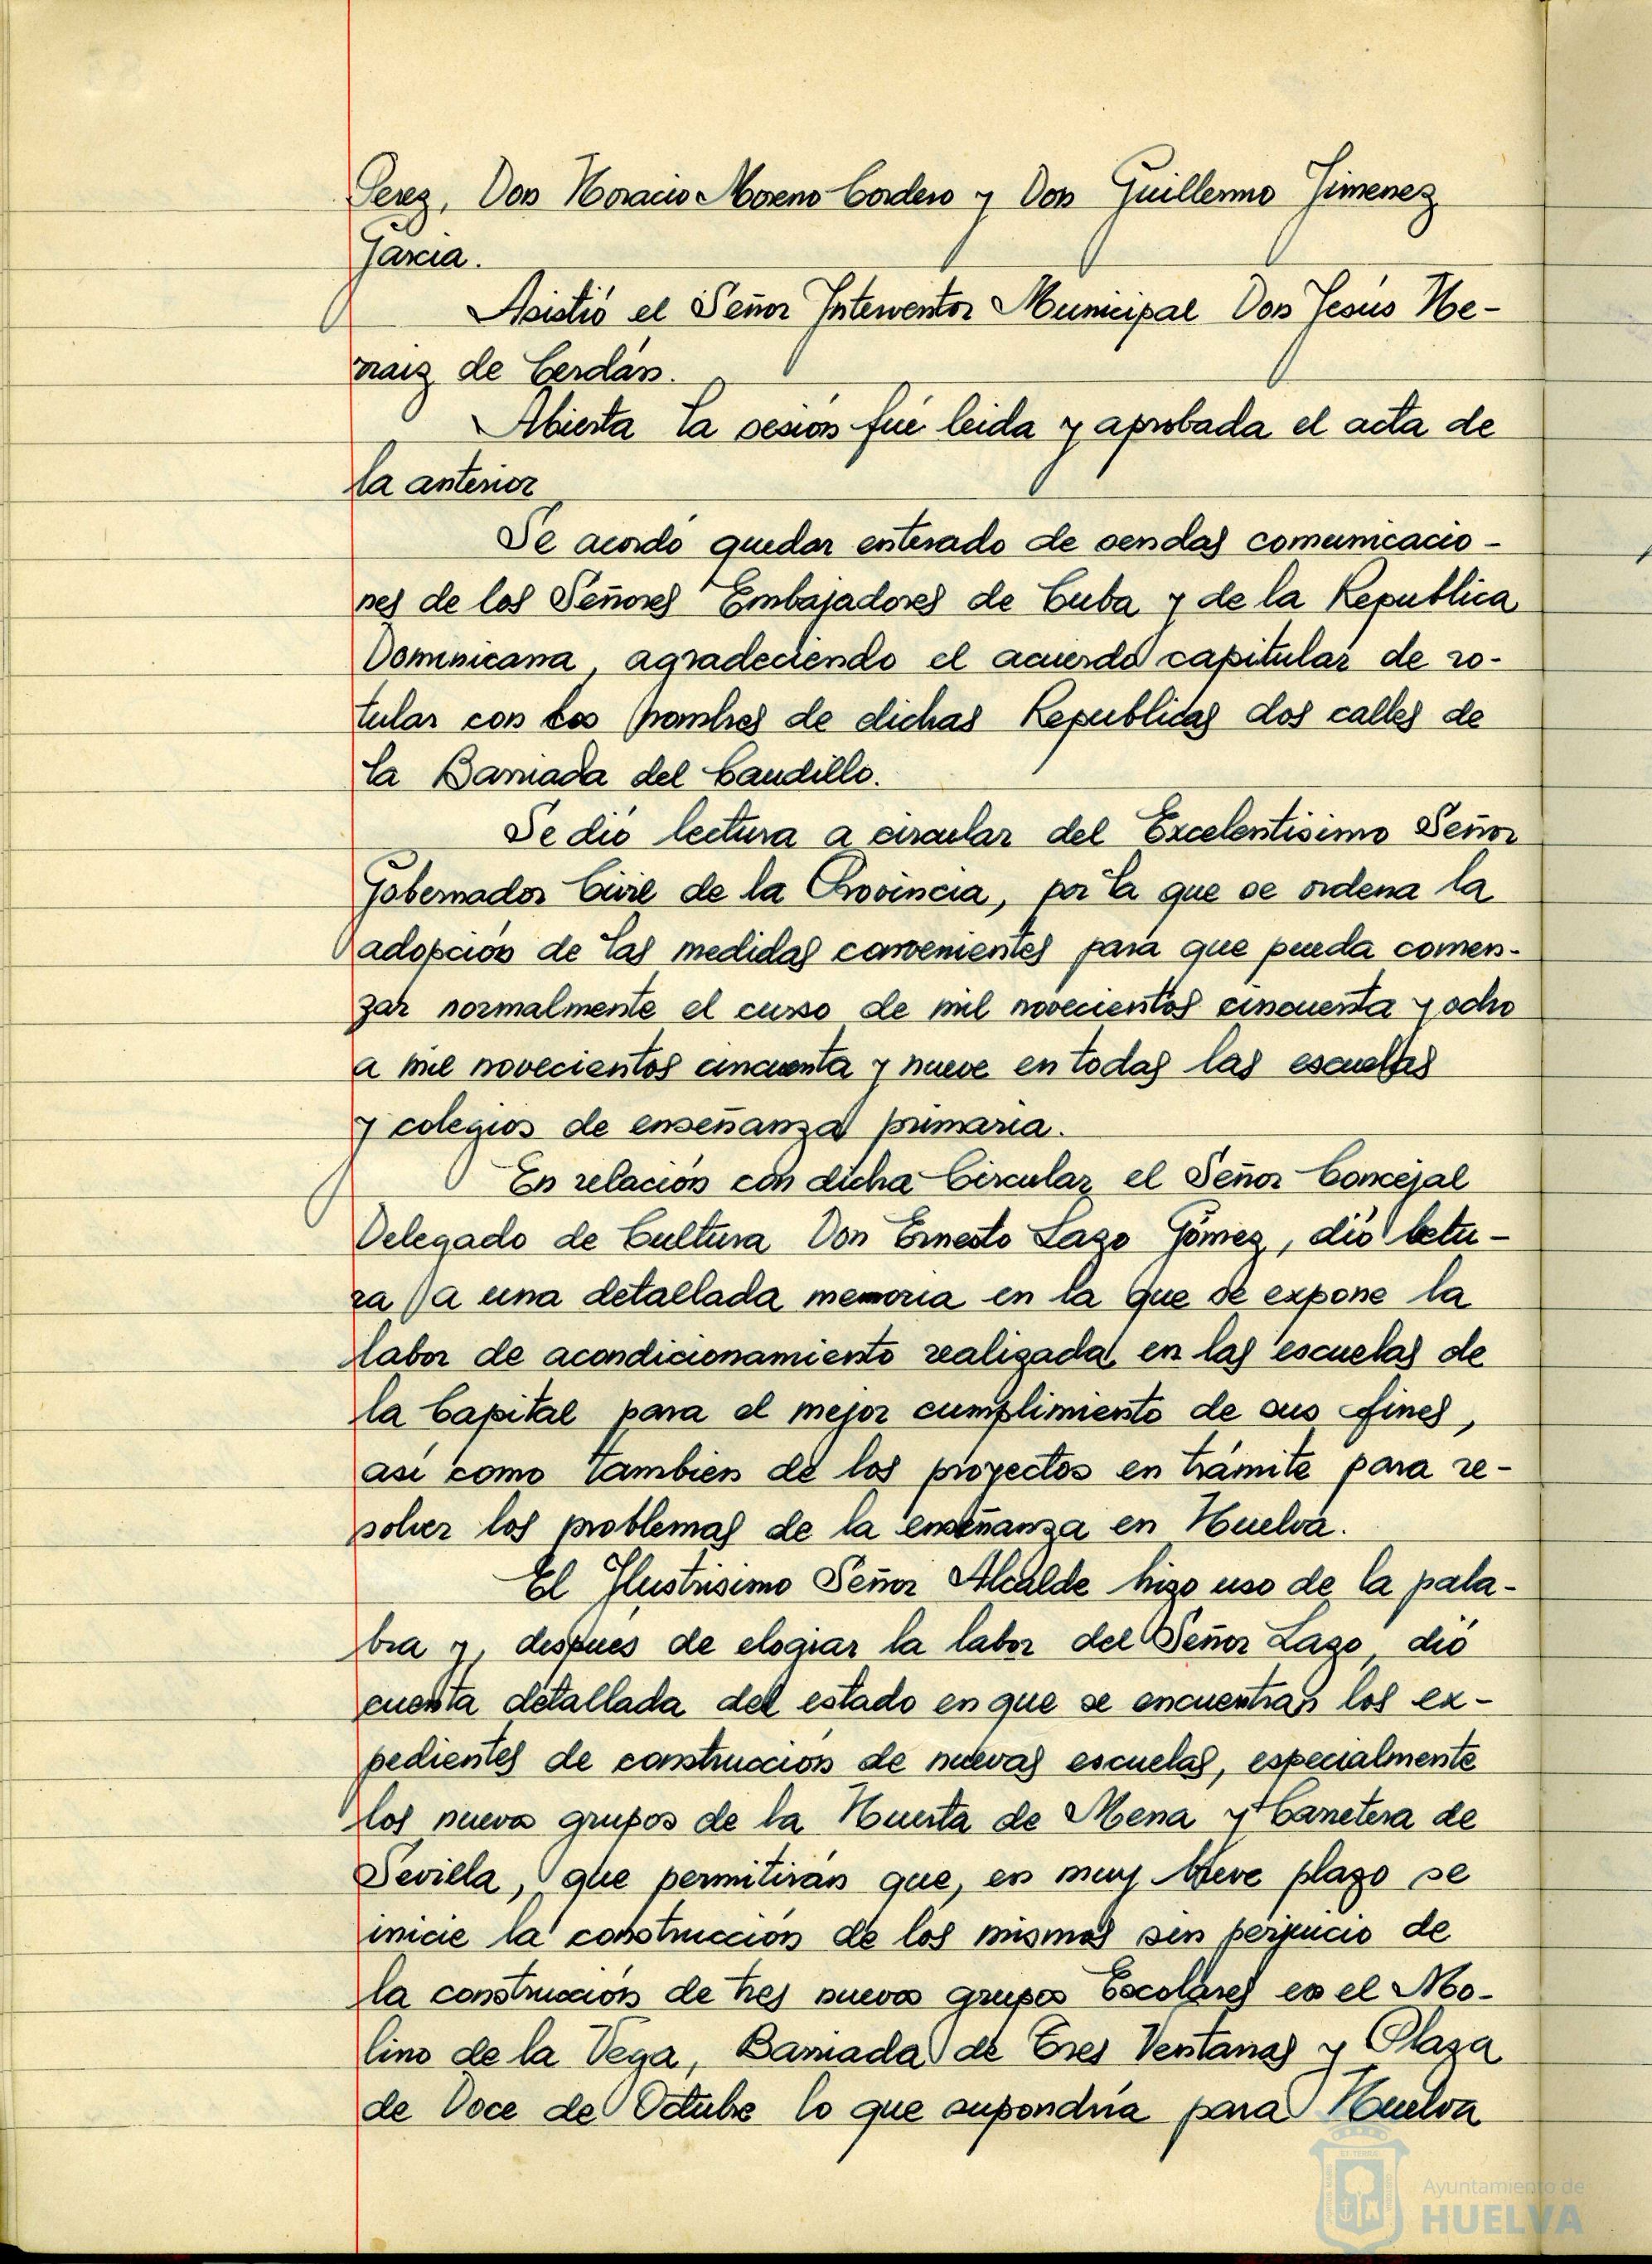 Perez, Don Horacio Moreno Cordero y Don Guillermo Jimenez
Garcia.
Asistió el Señor Interventor Municipal Don Jesús He-
rraiz de Cerdán.
Abierta la sesión fué leida y aprobada el acta de
la anterior
Se acordó quedar enterado de sendas comunicacio-
nes de los Señores Embajadores de Cuba y de la Republica
Dominicana, agradeciendo el acuerdo capitular de ro-
tular con los nombres de dichas Republicas dos calles de
la Barriada del Caudillo.
Se dió lectura a circular del Excelentisimo Señor
Gobernador Civil de la Provincia, por la que se ordena la
adopción de las medidas convenientes para que pueda comen-
zar normalmente el curso de mil novecientos cincuenta y ocho
a mil novecientos cincuenta y nueve en todas las escuelas
y colegios de enseñanza primaria.
En relación con dicha Circular el Señor Concejal
Delegado de Cultura Don Ernesto Lazo Gómez, dió lectu-
ra a una detallada memoria en la que se expone la
labor de acondicionamiento realizada en las escuelas de
la Capital para el mejor cumplimiento de sus fines,
asi como tambien de los proyectos en trámite para re-
solver los problemas de la enseñanza en Huelva.
El Ilustrisimo Señor Alcalde hizo uso de la pala-
bra y, después de elogiar la labor del Señor Lazo, dió
cuenta detallada del estado en que se encuentran los ex-
pedientes de construcción de nuevas escuelas, especialmente
los nuevos grupos de la Huerta de Mena y Carretera de
Sevilla, que permitirán que, en muy breve plazo se
inicie la construcción de los mismos sin perjucio de
la construcción de tres nuevos grupos Escolares en el Mo-
lino de la Vega, Barriada de Tres Ventanas y Plaza
de Doce de Octubre lo que supondría para Huelva
Ayuntamiento de
HUELVA